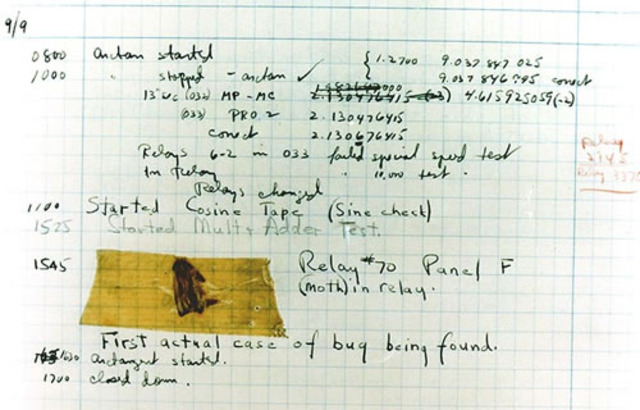 9/9
0800 antan started { 1.2700 9.037 847 025
1000 " stopped - antan ✓ 9.037 846 795 conect
13"uc (032) MP - MC 2.130476415 4.615925059(-2)
(033) PRO 2 2.130476415
conect 2.130676415
Relays 6-2 in 033 failed special speed test
In Relay " 10,000 test.
Relay 2145
Relay 3370
Relays changed
1100 Started Cosine Tape (Sine check)
1525 Started Mult + Adder Test.
1545 Relay #70 Panel F
(Moth) in relay.
First actual case of bug being found.
1630 antangent started.
1700 closed down.